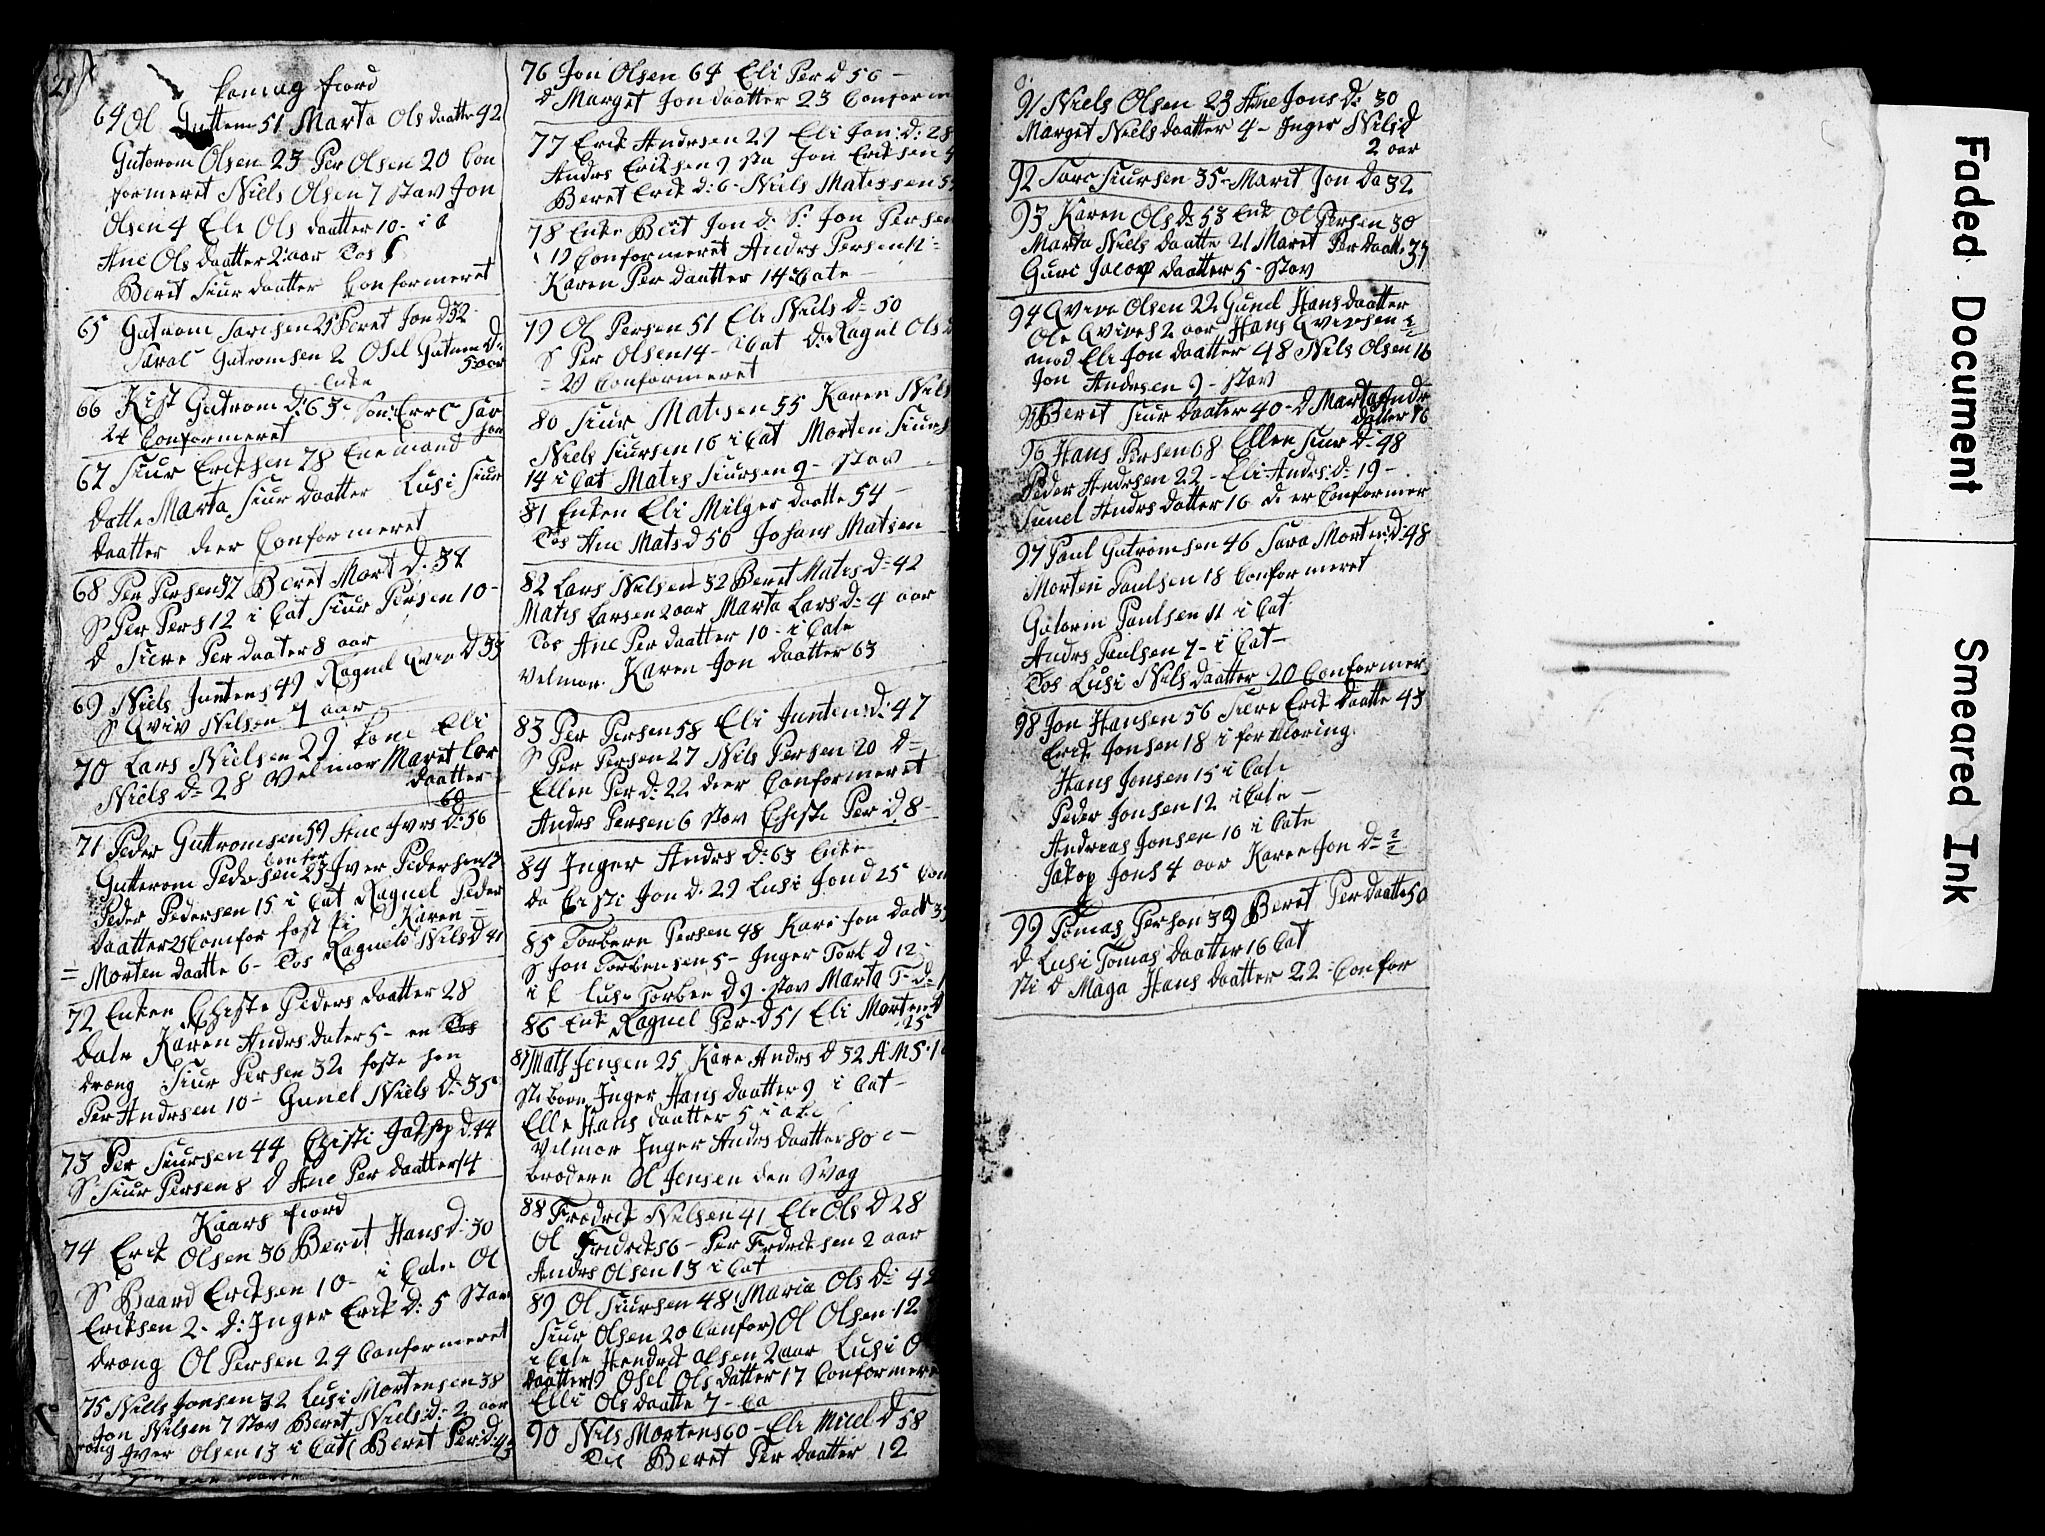 komag fiord
64 Ol Guttem 51 Marta Ols daatter 42
Gutorom Olsen 23 Per Olsen 20 Con
formeret Niels Olsen 7 stav Jon
Olsen 4 Ele Ols daatter 10 - i C
Ane Ols daatter 2 aar Tos
Berit Siur daatter Conformeret
65 Gutrom Sarchen 25 Beret Jon D 32
Saral Gutromsen 2 Osel Gutrom D:
5 aar
Enke
66 Kist Gutrom D: 63 - Son: Eric Sar
24 Conformeret
67 Siur Ericksen 78 Enemand
datte Marta Siur daatter Lusi Siur
daatter deer Conformeret
68 Per Persen 37 Beret Mort D: 34
S Per Pers 12 i Cat Siur Persen 10 -
d Siere Per daater 8 aar
69 Niels Juntens 49 Ragnel Qviv D 33
S Qviv Nilsen 7 aar
70 Lars Nielsen 29 kone Eli
Niels D: 28 Velmor Maret Lar
daatter
60
71 Peder Guttromsen 59 Ane Ivrs D: 56
Gutterom Pedersen 23 Iver Pedersen
Peder Pedersen 15 i Cat Ragnel Peder
daatter 25 Comfor fost ti Karen
= Morten daatte 6 - Tos Ragnele Nils D 41
72 Enken Chiste Peders daatter 28
date Karen Andrs dater 5 - en Tos
dræng Siur Persen 32 foste søn
Per Andrsen 10 - Gunel Niels D: 35
73 Per Siursen 44 Chisti Jakop D: 44
S Siur Persen 8 D Ane Per daatter 14
Kaars fiord
74 Erik Olsen 36 Berit Hans D: 30
S Baard Eriksen 10 - i Cate Ol
Eriksen 2 - D: Inger Erik D: 5 Stav
dræng Ol Persen 24 Conformeret
75 Niels Jonsen 32 Lusi Mortensen 38
Jon Nilsen 7 Stav Beret Niels D: 2 aar
Iver Olsen 13 i Cat Beret Per: D: 43
76 Jon Olsen 64 Eli Per D 56 -
d Marget Jon daatter 23 Conform
77 Erik Andrsen 29 Eli Jon: D: 28
Andrs Eriksen 9 sta Jon Eriksen
Beret Erik D: 6 - Niels Matissen
78 Enke Beret Jon D. S: Jon Persen
19 Conformeret Andrs Persen 12 =
Karen Per daatter 14 Cate -
79 Ol Persen 51 Eli Niels D: 50
S Per Olsen 14 - i Cat D: Ragnl Ols
= 20 Conformeret
80 Siur Matisen 55 Karen Niels
Niels Siursen 16 i Cat Morten Siurs
14 i Cat Matis Siursen 9 - Stav
81 Enken Eli Milger daatte 54 -
Tos Ane Mats D 50 Johans Matsen
82 Lars Nilsen 32 Beret Matis D: 42
Matis Larsen 2 aar Marta Lars D: 4 aar
Tos Ane Per daatter 10 - i Cate
Velmor Karen Jon daatter 63
83 Per Persen 58 Eli Junten: D: 47
S Per Persen 27 Nils Persen 20 D =
Ellen Per D: 22 deer Conformeret
Andrs Persen 6 Stav Chisti Per: D 8
84 Inger Andrs D: 63 Enke
da Cisti Jon D: 29 Lusi Jon D 25 Con
85 Torbern Persen 48 Kari Jon daat 35
S Jon Torbensen 5 - Inger Torb D 12
i C Lusi Torben D 9 Stav Marta T D:
86 Enk Ragnel Per D 51 Eli Morten D
25
87 Mats Jensen 25 Kare Andrs D 32
Sti børn Inger Hans daatter 9 i Cat -
Elle Hans daatter 5 i
Velmor Inger Andrs daatter 80 -
brodern Ol Jensen den Svag
88 Fredrik Nilsen 41 Eli Ols D 28
Ol Fredriks 6 - Per Fredriksen 2 aar
Andrs Olsen 13 i Cat
89 Ol Siursen 48 Maria Ols D:
Siur Olsen 20 Confor) Ol Olsen 12
i Cate Hendrik Olsen 2 aar Lusi O
daatter 19 Osel Ols datter 17 Conformere
Elli Ols daatte 7 - Ca
90 Nils Mortens 60 - Eli Micel D 58
Beret Per daatter 12
91 Niels Olsen 23 Ane Jons D: 30
Marget Niels daatter 4 - Inger Nils D
2 aar
92 Sare Siursen 35 - Marit Jon Da 32
93 Karen Ols D: 53 Enk Ol Persen 30
Marta Niels daatte 21 Maret Per daatte 37
Guro Jacop daatter 5 - Stav
94 Qvive Olsen 22 Gunel Hans daatter
Ole Qvives 2 aar Hans Qvivesen ½
mod Eli Jon daatter 48 Nils Olsen 16
Jon Andrsen 9 - Stav
95 Beret Siur daater 40 - D Marta Andr
datter 16
96 Hans Persen 68 Ellen Siur D: 48
Peder Andrsen 22 - Eli Andrs: D: 19 -
Sunel Andrs datter 16 de er Conformer
97 Paul Gutromsen 46 Sara Morten: D: 48
Morten Paulsen 18 Conformeret
Gutorm Paulsen 11 i Cat
Andrs Paulsen 7 - i Cat -
Tos Lusi Nils daatter 20 Conformer
98 Jon Hansen 56 Siere Erik daatte 43
Erik Jonsen 18 i forklaring
Hans Jonsen 15 i Cate
Peder Jonsen 12 i Cate -
Andreas Jonsen 10 i Cate
Jakop Jons 4 aar Karen Jon D: ½
99 Tomas Person 39 Beret Per daatte 50
D Lusi Tomas daatter 16 Cat
sti D Maga Hans daatter 22 - Confor
Faded Document
Smeared Ink